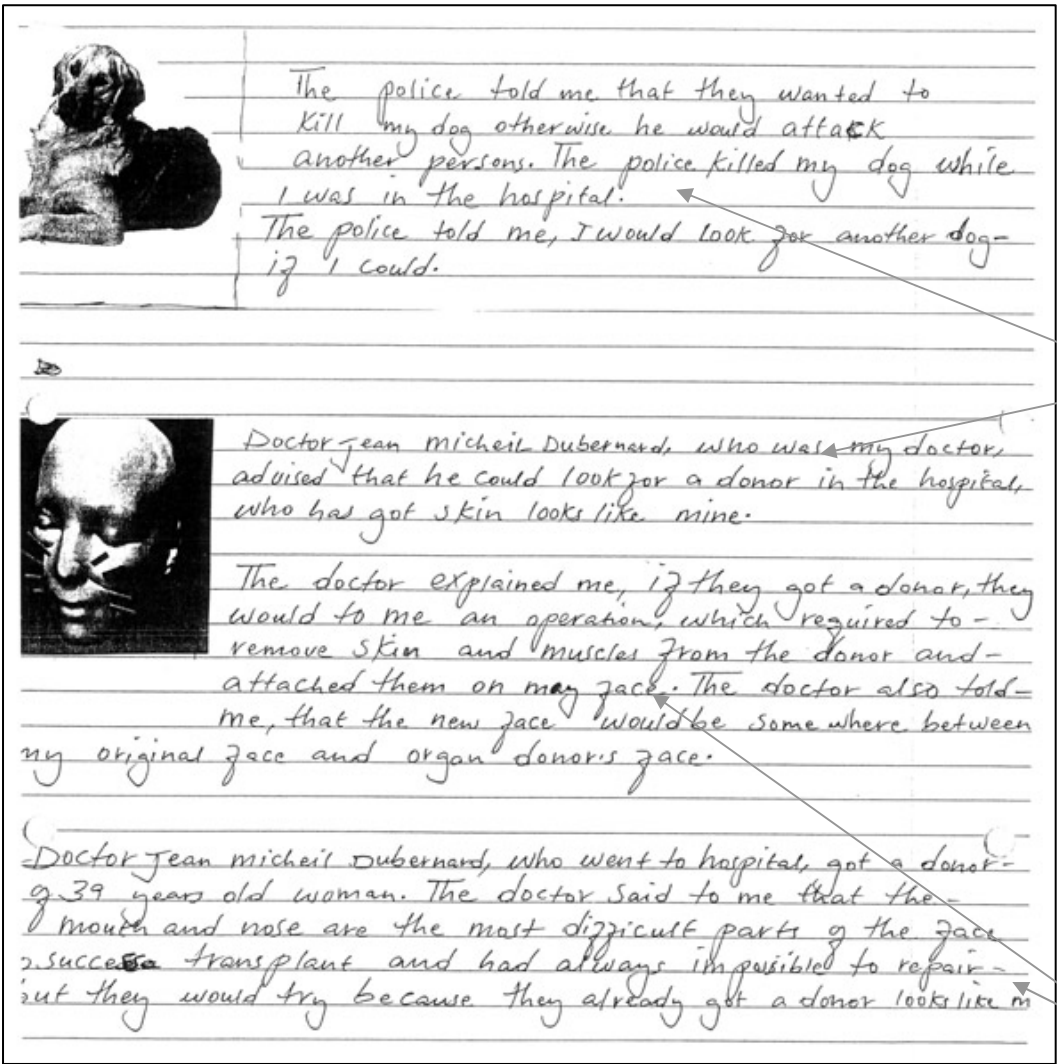 The police told me that they wanted to
Kill my dog otherwise he would attack
another persons. The police killed my dog while
I was in the hospital.
The police told me, I would look for another dog-
if I could.
Doctor Jean micheil Dubernard, who was my doctor,
advised that he could look for a donor in the hospital,
who has got skin looks like mine.
The doctor explained me, if they got a donor, they
would to me an operation, which required to-
remove skin and muscles from the donor and-
attached them on may face. The doctor also told-
me, that the new face would be some where between
my original face and organ donor's face.
Doctor Jean micheil Dubernard, who went to hospital, got a donor-
of 39 years old woman. The doctor said to me that the-
mouth and nose are the most difficult parts of the face
transplant and had always impossible to repair-
but they would try because they already got a donor looks like m